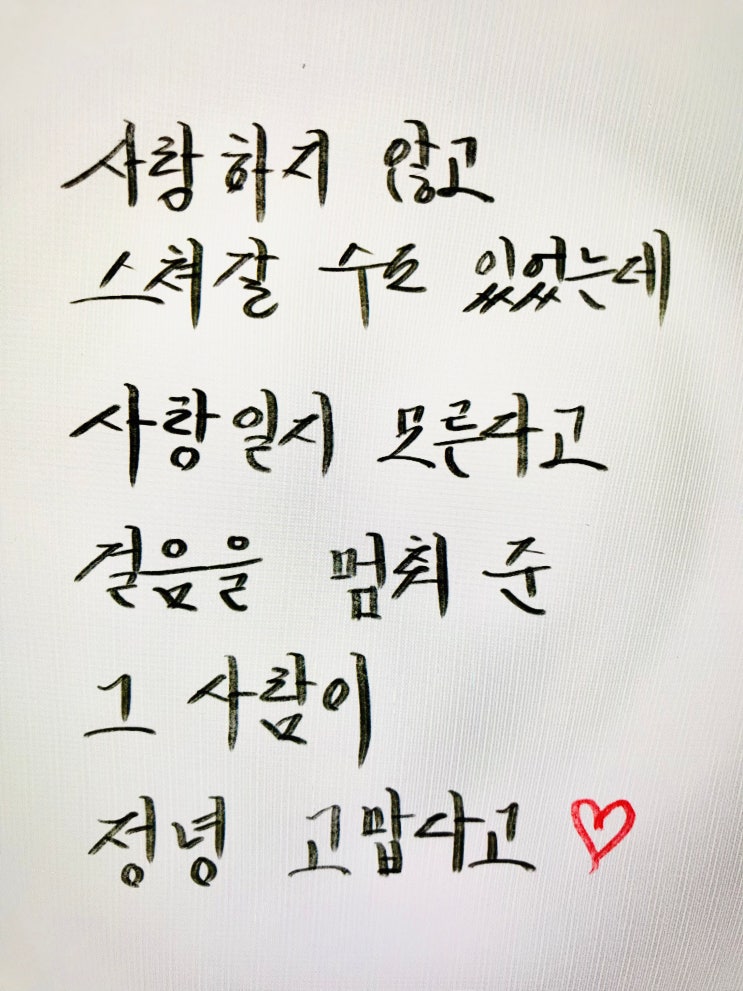 사랑하지 않고
스쳐갈 수도 있었는데
사랑일지 모른다고
걸음을 멈춰 준
그 사람이
정녕 고맙다고